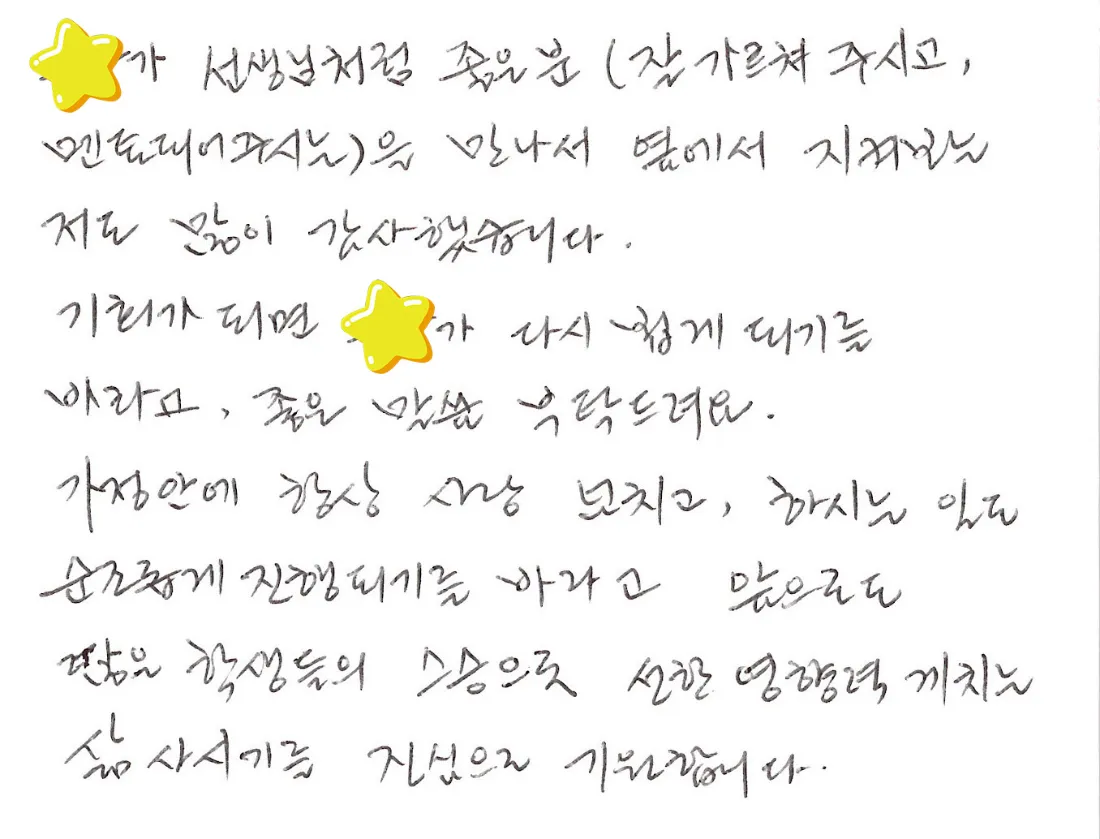 가 선생님처럼 좋은분 (잘 가르쳐 주시고,
멘토되어주시는)을 만나서 옆에서 지켜보는
저도 많이 감사했습니다.
기회가 되면 가 다시 뵙게 되기를
바라고, 좋은 말씀 부탁드려요.
가정안에 항상 사랑 넘치고, 하시는 일도
순조롭게 진행되기를 바라고 앞으로도
많은 학생들의 스승으로 선한 영향력 끼치는
삶 사시기를 진심으로 기원합니다.